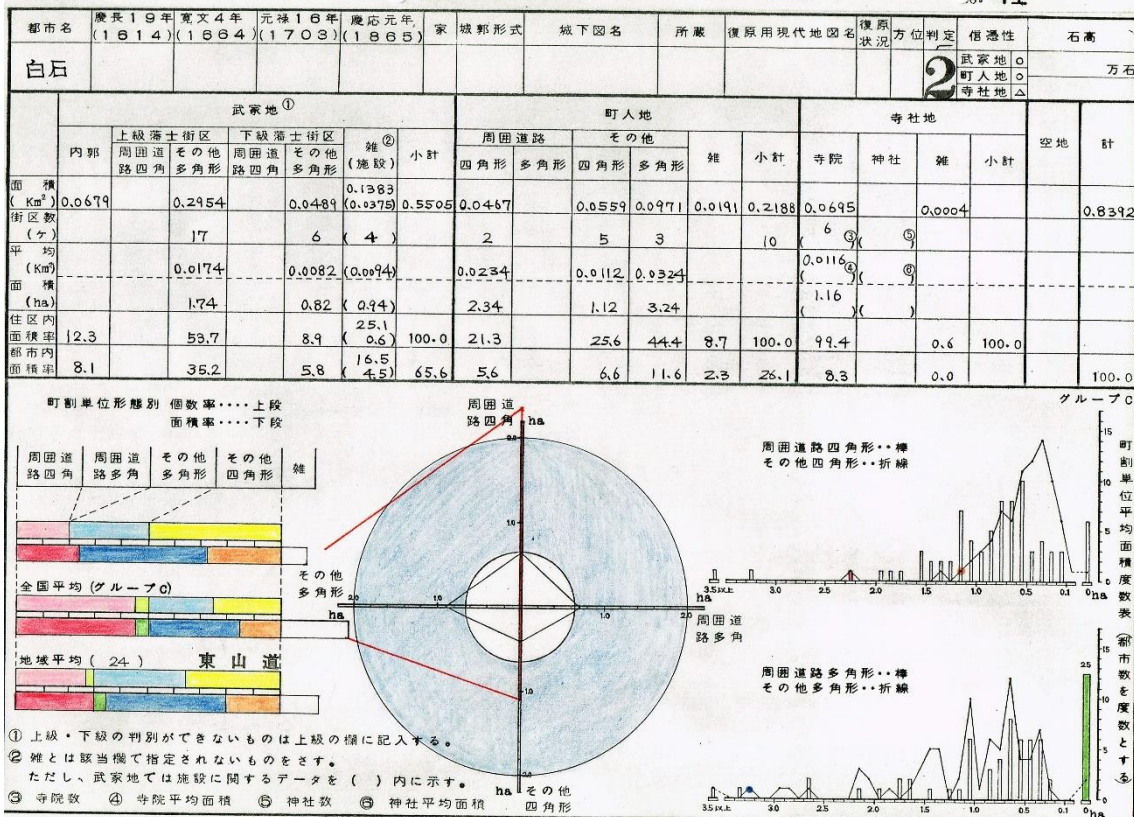 都市名 慶長19年(1614) 寛文4年(1664) 元禄16年(1703) 慶応元年(1865) 家 城郭形式 城下図名 所蔵 復原用現代地図名 復原状況 方位 判定 信憑性 石高
白石 2 武家地 ○ 町人地 ○ 寺社地 △ 万石
武家地① 町人地 寺社地 空地 計
内郭 上級藩士街区 下級藩士街区 雑②(施設) 小計 周囲道路 その他 雑 小計 寺院 神社 雑 小計
周囲道路四角 その他多角形 周囲道路四角 その他多角形 四角形 多角形 四角形 多角形
面積(Km²) 0.0679 0.2954 0.0489 0.1383 (0.0375) 0.5505 0.0467 0.0559 0.0971 0.0191 0.2188 0.0695 0.0004 0.8392
街区数(ケ) 17 6 ( 4 ) 2 5 3 10 6 ( ③) ( ⑤)
平均(Km²) 0.0174 0.0082 (0.0094) 0.0234 0.0112 0.0324 0.0116 ( ④) ( ⑥)
面積(ha) 1.74 0.82 ( 0.94) 2.34 1.12 3.24 1.16 ( ) ( )
住区内面積率 12.3 53.7 8.9 25.1 ( 0.6) 100.0 21.3 25.6 44.4 8.7 100.0 99.4 0.6 100.0
都市内面積率 8.1 35.2 5.8 16.5 ( 4.5) 65.6 5.6 6.6 11.6 2.3 26.1 8.3 0.0 100.0
町割単位形態別 個数率‥‥上段
面積率‥‥下段
周囲道路四角 周囲道路多角 その他多角形 その他四角形 雑
全国平均(グループC)
地域平均( 24 ) 東山道
① 上級・下級の判別ができないものは上級の欄に記入する。
② 雑とは該当欄で指定されないものをさす。
ただし、武家地では施設に関するデータを( )内に示す。
③ 寺院数 ④ 寺院平均面積 ⑤ 神社数 ⑥ 神社平均面積
周囲道路四角 ha
2.0
1.0
その他多角形
ha 2.0 1.0 1.0 2.0 ha
周囲道路多角
1.0
2.0
ha その他四角形
グループC
周囲道路四角形‥棒
その他四角形‥折線
15
10
5
0
3.5以上 3.0 2.0 1.0 0.5 0 ha
周囲道路多角形‥棒
その他多角形‥折線
25
15
10
5
0
3.5以上 3.0 2.0 1.0 0.5 0 ha
町割単位平均面積度数表(都市数を度数とする)